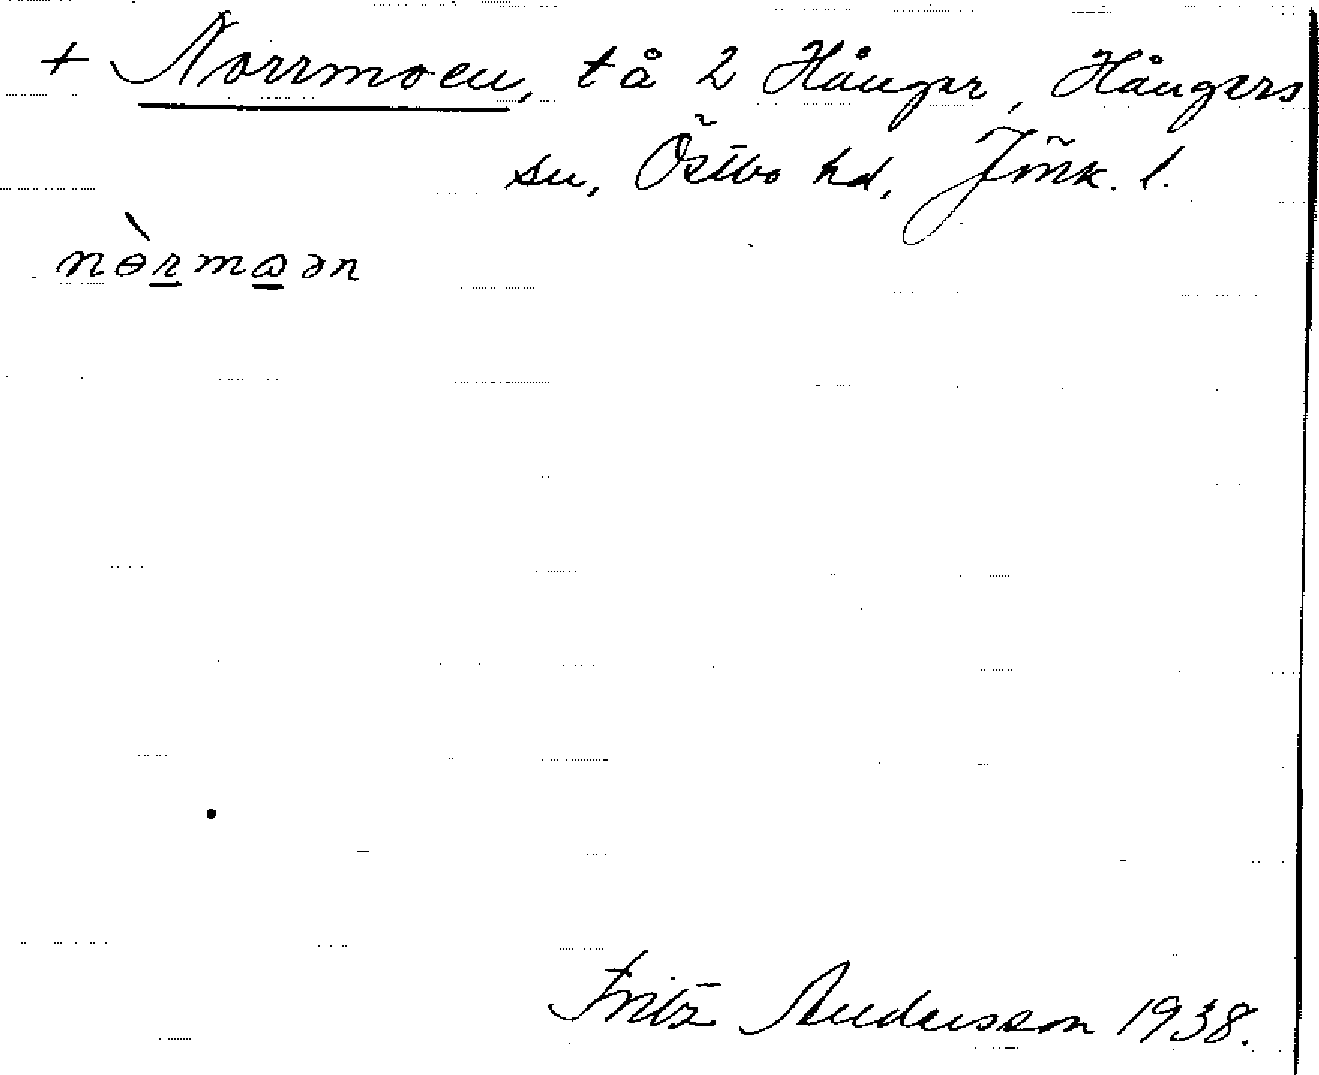 + Norrmoen, tå 2 Hånger, Hångers
sn, Östbo hd, Jönk. l.
nɵ̀rmɷən
Fritz Andersson 1938.